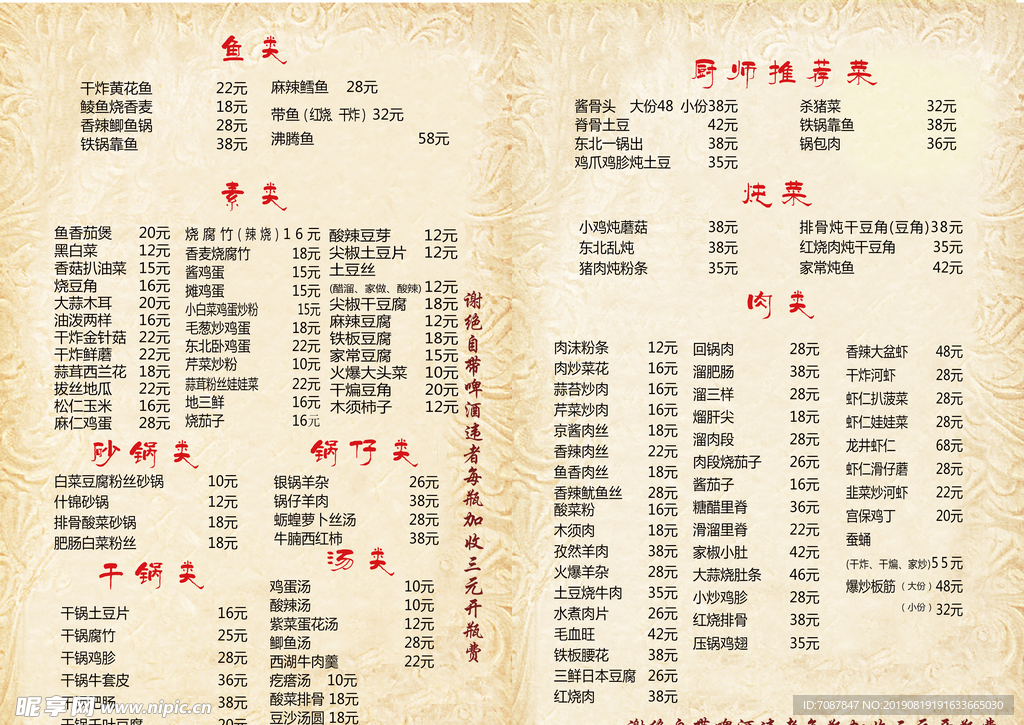 鱼类
干炸黄花鱼 22元
鲮鱼烧香麦 18元
香辣鲫鱼锅 28元
铁锅靠鱼 38元
麻辣鳕鱼 28元
带鱼(红烧 干炸) 32元
沸腾鱼 58元
素类
鱼香茄煲 20元
黑白菜 12元
香菇扒油菜 15元
烧豆角 16元
大蒜木耳 20元
油泼两样 16元
干炸金针菇 22元
干炸鲜蘑 22元
蒜茸西兰花 18元
拔丝地瓜 22元
松仁玉米 16元
麻仁鸡蛋 28元
烧腐竹(辣烧)16元
香麦烧腐竹 18元
酱鸡蛋 15元
摊鸡蛋 15元
小白菜鸡蛋炒粉 15元
毛葱炒鸡蛋 18元
东北卧鸡蛋 22元
芹菜炒粉 10元
蒜茸粉丝娃娃菜 22元
地三鲜 16元
烧茄子 16元
酸辣豆芽 12元
尖椒土豆片 12元
土豆丝
(醋溜、家做、酸辣) 12元
尖椒干豆腐 18元
麻辣豆腐 12元
铁板豆腐 18元
家常豆腐 15元
火爆大头菜 10元
干煸豆角 20元
木须柿子 12元
砂锅类
白菜豆腐粉丝砂锅 10元
什锦砂锅 12元
排骨酸菜砂锅 18元
肥肠白菜粉丝 18元
锅仔类
银锅羊杂 26元
锅仔羊肉 38元
蛎蝗萝卜丝汤 28元
牛腩西红柿 38元
干锅类
干锅土豆片 16元
干锅腐竹 25元
干锅鸡胗 28元
干锅牛套皮 36元
38元
干锅千叶豆腐 20元
汤类
鸡蛋汤 10元
酸辣汤 10元
紫菜蛋花汤 12元
鲫鱼汤 28元
西湖牛肉羹 22元
疙瘩汤 10元
酸菜排骨 18元
豆沙汤圆 18元
谢绝自带啤酒违者每瓶加收三元开瓶费
厨师推荐菜
酱骨头 大份48 小份38元
脊骨土豆 42元
东北一锅出 38元
鸡爪鸡胗炖土豆 35元
杀猪菜 32元
铁锅靠鱼 38元
锅包肉 36元
炖菜
小鸡炖蘑菇 38元
东北乱炖 38元
猪肉炖粉条 35元
排骨炖干豆角(豆角)38元
红烧肉炖干豆角 35元
家常炖鱼 42元
肉类
肉沫粉条 12元
肉炒菜花 16元
蒜苔炒肉 16元
芹菜炒肉 16元
京酱肉丝 18元
香辣肉丝 22元
鱼香肉丝 18元
香辣鱿鱼丝 28元
酸菜粉 16元
木须肉 18元
孜然羊肉 38元
火爆羊杂 28元
土豆烧牛肉 35元
水煮肉片 26元
毛血旺 42元
铁板腰花 38元
三鲜日本豆腐 26元
红烧肉 38元
回锅肉 28元
溜肥肠 38元
溜三样 28元
熘肝尖 18元
溜肉段 28元
肉段烧茄子 26元
酱茄子 16元
糖醋里脊 36元
滑溜里脊 22元
家椒小肚 42元
大蒜烧肚条 46元
小炒鸡胗 28元
红烧排骨 38元
压锅鸡翅 35元
香辣大盆虾 48元
干炸河虾 28元
虾仁扒菠菜 28元
虾仁娃娃菜 28元
龙井虾仁 68元
虾仁滑仔蘑 28元
韭菜炒河虾 22元
宫保鸡丁 20元
蚕蛹
(干炸、干煸、家炒)55元
爆炒板筋(大份)48元
(小份)32元
昵享网 www.nipic.cn
ID:7087847 NO:20190819191633665030